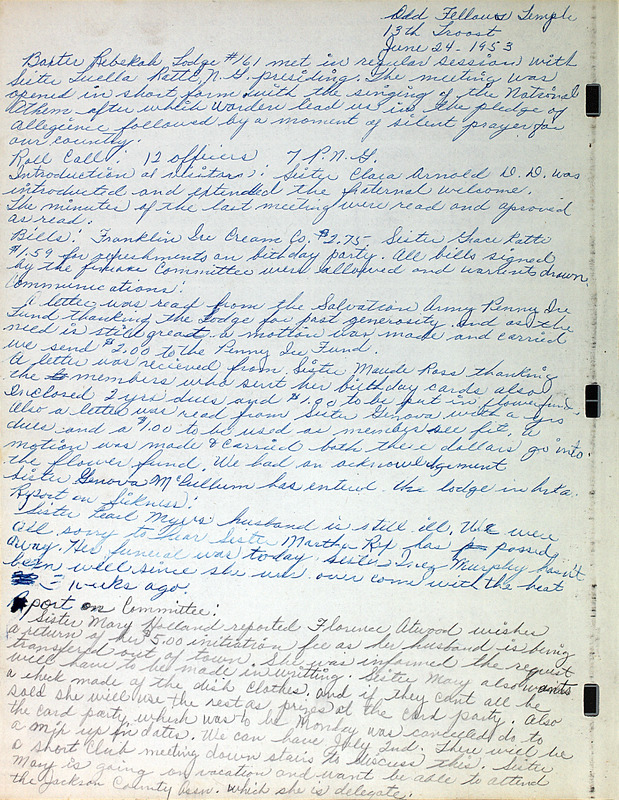 Odd Fellows Temple
13th Troost
June 24 - 1953
Baxter Rebekah Lodge #161 met in regular session with
Sister Luella Kette, N.G. presiding. The meeting was
opened in short form with the singing of the National
Athem after which Warden lead us in the pledge of
allegience followed by a moment of silent prayer for
our country.
Roll Call: 12 officers 7 P.N.G.
Introduction of visitors: Sister Clara Arnold D.D. was
introducted and extended the fraternal welcome.
The minutes of the last meeting were read and aproved
as read.
Bills: Franklin Ice Cream Co. $2.75 Sister Grace Kette
$1.59 for refreshments on birthday party. All bills signed
by the finance Committee were allowed and warents drawn
Communications:
A letter was read from the Salvation Army Penny Ice
Fund thanking the Lodge for past generosity. and as the
need is still great a motion was made and carried
we send $2.00 to the Penny Ice Fund.
A letter was recieved from Sister Maude Ross thanking
the members who sent her birthday cards also
Inclosed 2 yrs dues and $1.00 to be put in flower fund.
Also a letter was read from Sister Genova with a yrs
dues and a $1.00 to be used as members see fit, a
motion was made & carried both these dollars go into
the flower fund. We had an acknowledgement
Sister Genova McCullum has entered the lodge in
Report on Sickness:
Sister Pearl Myers husband is still ill. We were
all sorry to hear Sister Martha has passed
away. Her funeral was today. Sister Inez Murphy hasn't
been well since she was over come with the heat
2 weeks ago.
Report on Committee:
Sister Mary Holland reported Florence Atwood wishes
a return of her $5.00 initiation fee as her husband is being
transfered out of town. She was informed the request
will have to be made in writting. Sister Mary also wants
a check made of the dish clothes. and if they cant all be
sold she will use the rest as prizes at the card party. Also
the card party which was to be Monday was canceled do to
a mix up in dates. We can have July 2nd. There will be
a short Club meeting down stairs to discuss this. Sister
Mary is going on vacation and want be able to attend
the Jackson County Assn. which she is delegate.